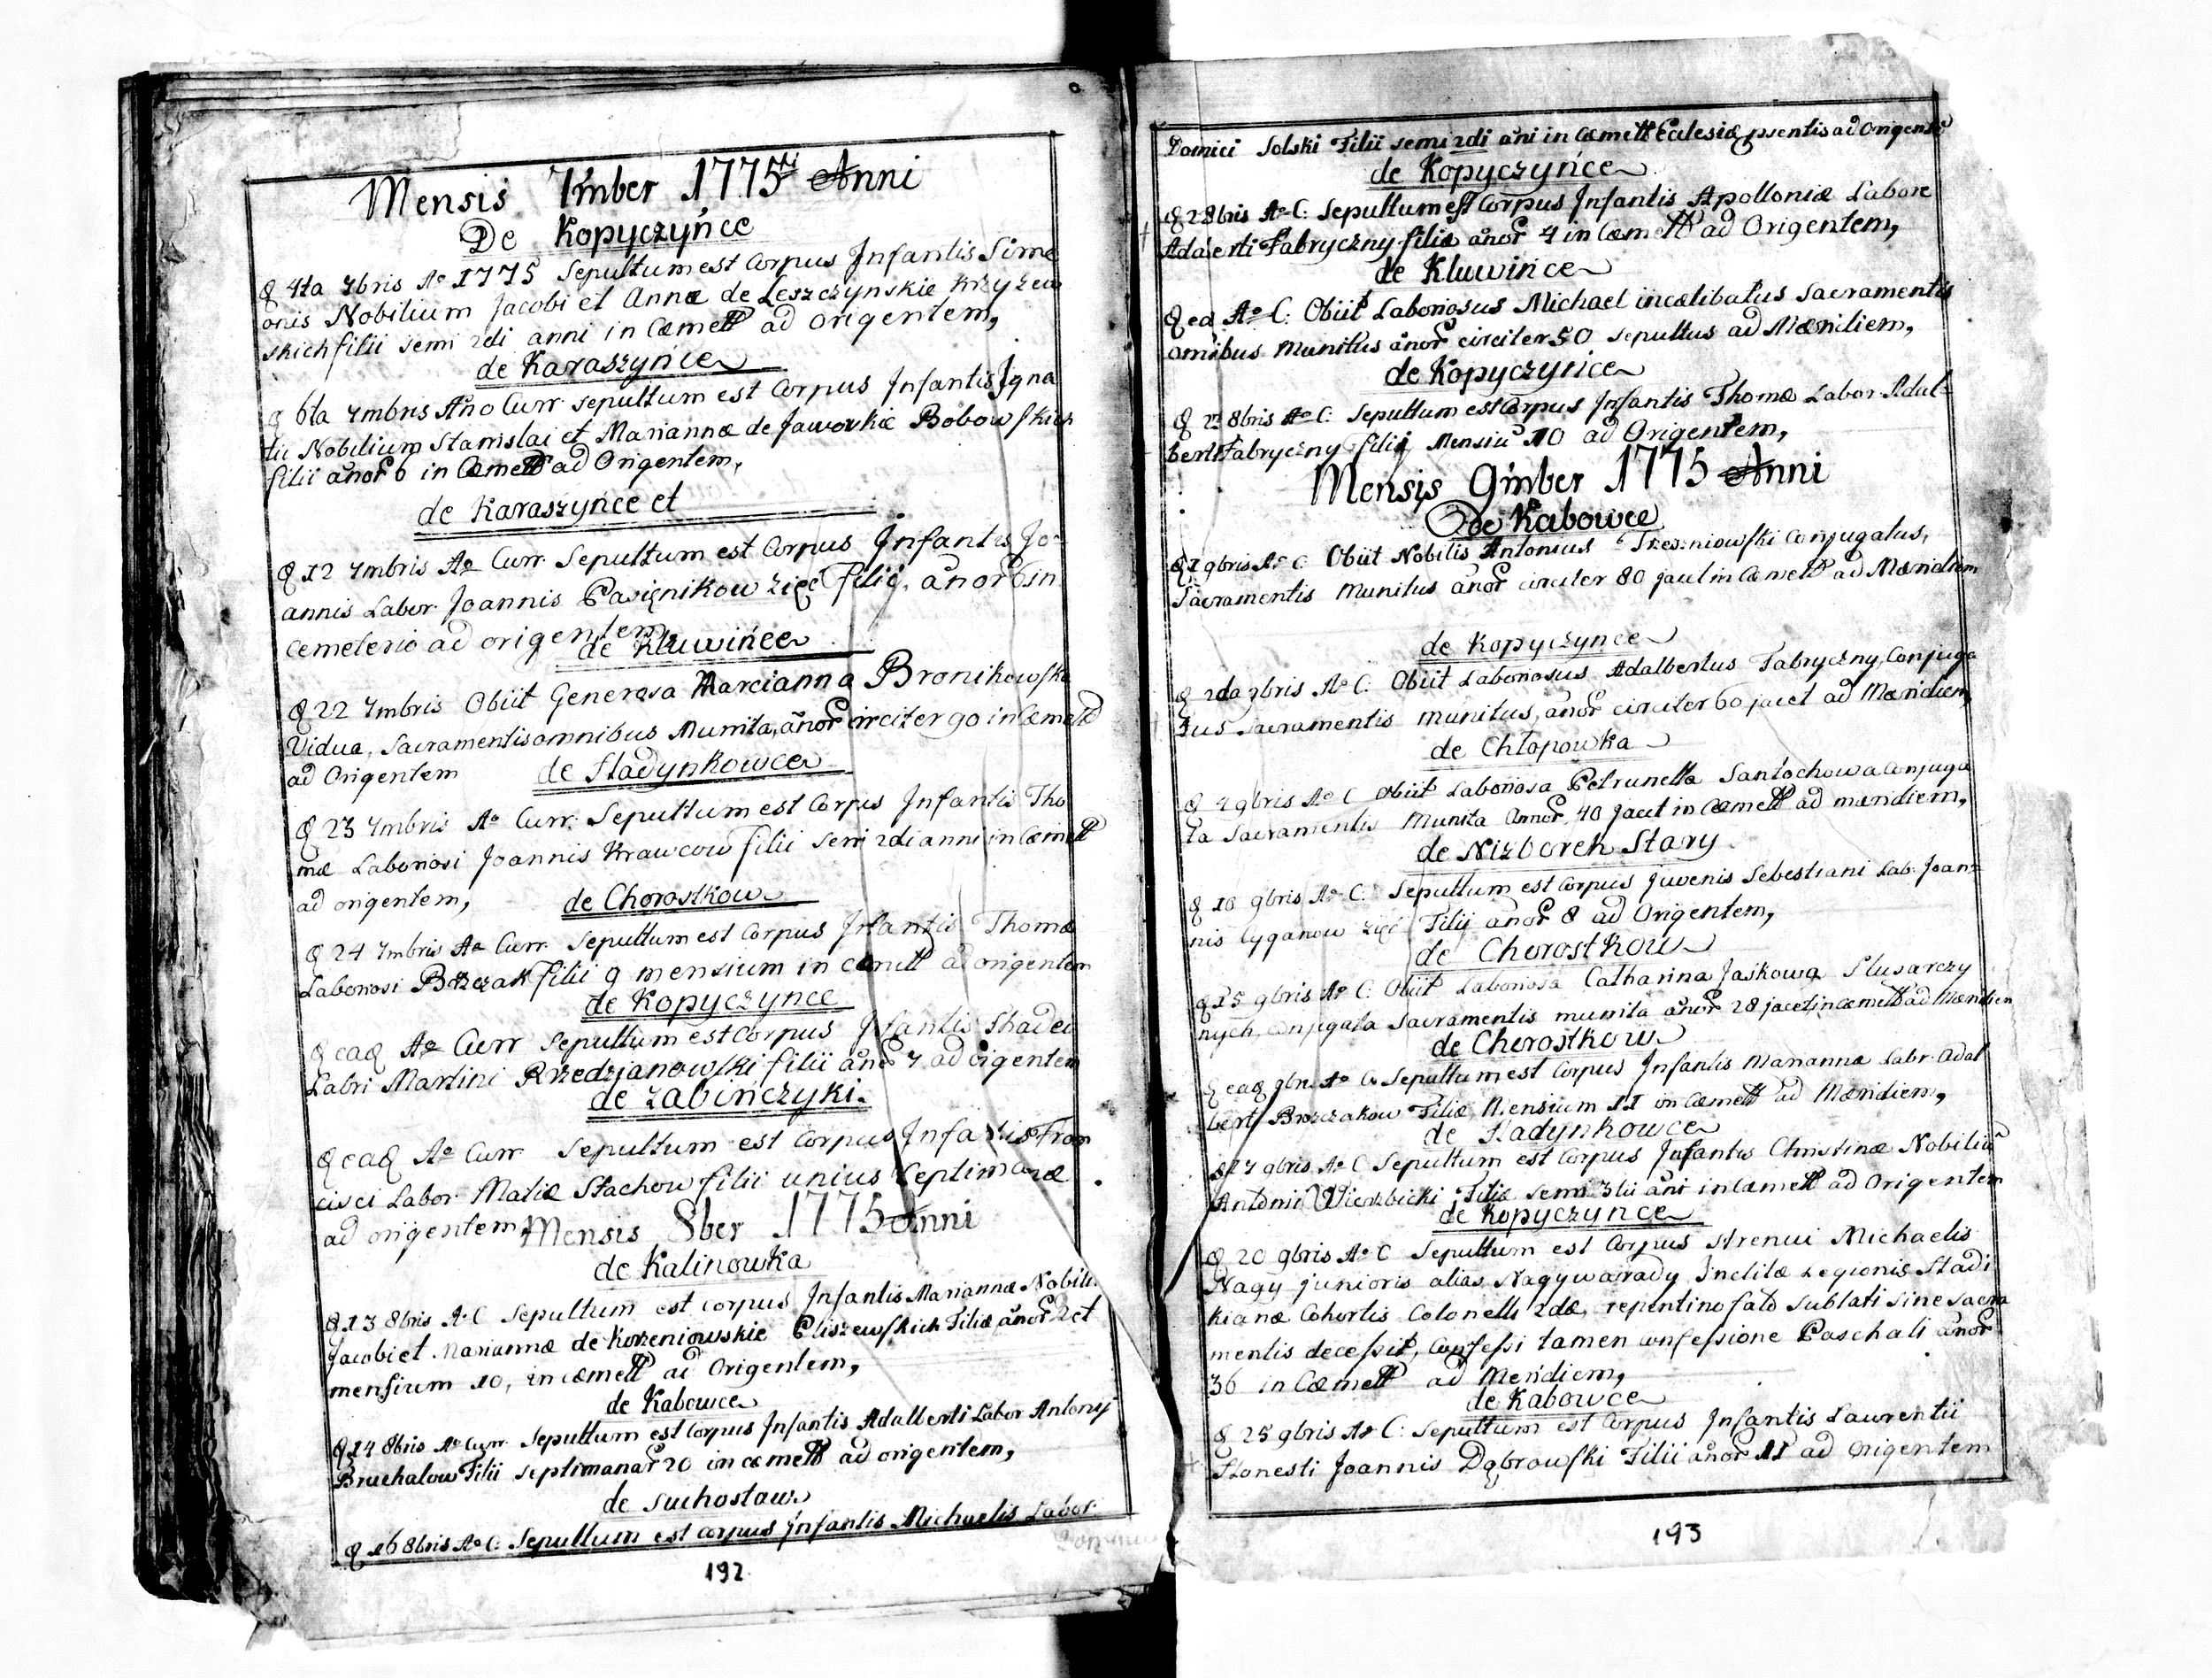 Mensis 7mber 1775ti Anni
De Kopyczyńce
Q 4ta 7bris Ao 1775 Sepultum est Corpus Infantis Sime
onis Nobilium Jacobi et Annæ de Leszczynskie Krzyzew
skich filii semi 2di anni in Cæmett ad origentem,
de Karaszyńce
Q 6ta 7mbris Ano Curr. sepultum est Corpus Infantis Igna
tii Nobilium Stanislai et Mariannæ de Jaworskie Bobowskich
filii anor 6 in Cæmett ad Origentem,
de Karaszyńce et
Q 12 7mbris Ao Curr. Sepultum est Corpus Infantis Jo-
annis Labor. Joannis zięć filii, anor 6 in
cemeterio ad origentem
de Kluwińce
Q 22 7mbris Obiit Generosa Marcianna Bronikowska
Vidua, Sacramentis omnibus Munita, anor circiter 90 in Cæmett
ad Origentem
de Hadynkowce
Q 23 7mbris Ao Curr. Sepultum est Corpus Infantis Tho
mæ Laboriosi Joannis Krawcow filii semi 2di anni in Cæmett
ad origentem,
de Chorostkow
Q 24 7mbris Ao Curr. Sepultum est Corpus Infantis Thomæ
Laboriosi Brzczak filii 9 mensium in cæmett ad origentem
de Kopyczynce
Q eaq Ao Curr Sepultum est Corpus Infantis Thadei
Labri Martini Rzedzjanowski filii ano 7 ad origentem
de Zabińczyki.
Q eaq Ao Curr. Sepultum est Corpus Infantis Fran
cisci Labor. Matiæ Stachow filii unius Septimanæ
ad origentem,
Mensis 8ber 1775 Anni
de Kalinowka
Q 13 8bris A. C Sepultum est corpus Infantis Mariannæ Nobiliu
Jacobi et Mariannæ de Korzeniowskie Eliszewskich Filiæ anor 2 et
mensium 10, in cæmett ad Origentem,
de Kabowce
Q 14 8bris Ao Curr. Sepultum est Corpus Infantis Adalberti Labor Antonij
Bruchalow Filii septimanar 20 in cæmett ad origentem,
de Suchostaw
Q 16 8bris Ao C. Sepultum est corpus Infantis Michaelis Labor.
192
Domici Solski Filii semi 2di ani in Cæmett Eclesiæ psentis ad Origente
de Kopyczyńce
Q 28bris Ao C: Sepultum est Corpus Infantis Apolloniæ Labore
Fabryczny filiæ anor 4 in Cæmett ad Origentem,
de Kluwińce
Q ea Ao C: Obiit Laboriosus Michael incælibatus Sacramentis
omibus Munitus anor circiter 50 sepultus ad Mæridiem,
de Kopyczyńce
Q 8bris Ao C: Sepultum est Corpus Infantis Thomæ Labor. Adal-
berti Fabryczny filij Mensiu 10 ad Origentem,
Mensis 9mber 1775 Anni
De Kabowce
Q 1 9bris Ao C Obiit Nobilis Antonius Conjugatus,
Sacramentis Munitus anor circiter 80 jacet in Cæmett ad Mæridiem
de Kopyczynce
Q 2da 9bris Ao C: Obiit Laboriosus Adalbertus Fabryczny, Conjuga
tus Sacramentis munitus, anor circiter 60 jacet ad Mæridiem,
de Chłopowka
Q 4 9bris Ao C Obiit Laboriosa Petrunella Santochowa Conjuga
ta Sacramentis Munita Annor 40 Jacet in Cæmett ad mæridiem,
de Nizboreh Stary
Q 10 9bris Ao C. Sepultum est Corpus Juvenis Sebestiani Lab. Joan-
nis Cyganow zięć Filij anor 8 ad Origentem,
de Chorostkow
Q 15 9bris Ao C. Obiit Laboriosa Catharina Jaskowa Slusarczy
nych, conjugata Sacramentis munita anor 28 jacet in cæmett ad Mæridiem
de Chorostkow
Q eaq 9bris Ao C. Sepultum est Corpus Infantis Mariannæ Labr. Adal
berti Brzczakow Filiæ Mensium 11 in Cæmett ad Mæridiem,
de Hadynkowce
Q 17 9bris Ao C Sepultum est Corpus Infantis Christinæ Nobiliu
Antonii Wierzbicki Filiæ semi 3tii ani in Cæmett ad Origentem
de Kopyczynce
Q 20 9bris Ao C Sepultum est Corpus strenui Michaelis
Nagy junioris alias Nagywarady Inclitæ Legionis Stadi
kianæ Cohortis Colonells 2dæ, repentino fato sublati sine sacra
mentis decessit, Confessi tamen confessione Paschali anor
36 in Cæmett ad Meridiem,
de Kabowce
Q 25 9bris Ao C: Sepultum est Corpus Infantis Laurentii
Honesti Joannis Dąbrowski Filii anor 11 ad Origentem
193